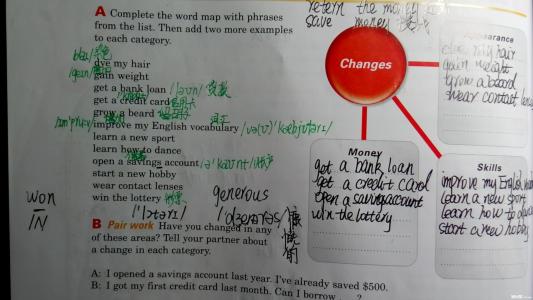 A Complete the word map with phrases
from the list. Then add two more examples
to each category.
dye my hair
gain weight
get a bank loan /ləʊn/ 贷款
get a credit card 信用卡
grow a beard
improve my English vocabulary
learn a new sport
learn how to dance
open a savings account
start a new hobby
wear contact lenses
win the lottery
won
IN
generous
B Pair work Have you changed in any
of these areas? Tell your partner about
a change in each category.
A: I opened a savings account last year. I've already saved $500.
B: I got my first credit card last month. Can I borrow . . . ?
the money
save money
Changes
Appearance
dye my hair
gain weight
grow a beard
wear contact lenses
Money
get a bank loan
get a credit card
open a saving account
win the lottery
Skills
improve my English
learn a new sport
learn how to
start a new hobby